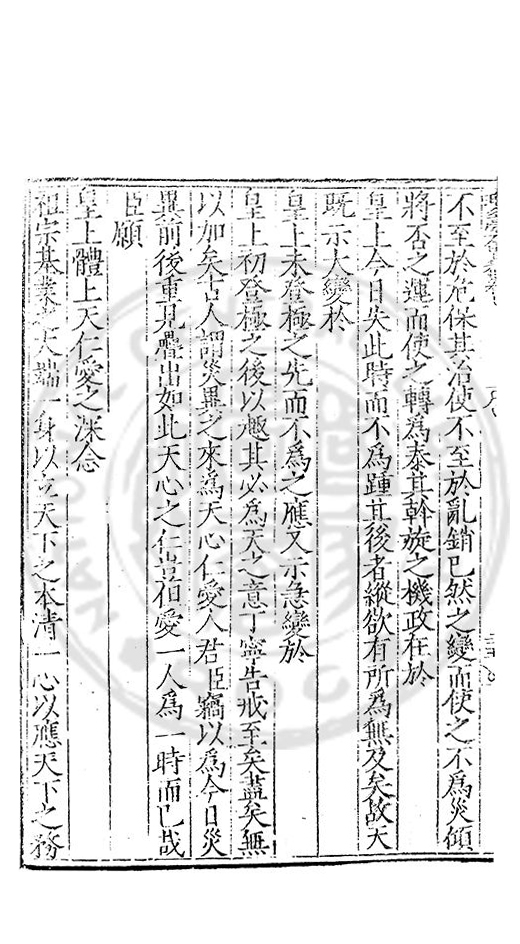 不至於危保其治使不至於亂銷已然之變而使之不為災傾
將否之運而使之轉為泰其斡旋之機政在於
皇上今日失此時而不為踵其後者縱欲有所為無及矣故天
既示大變於
皇上未登極之先而不為之應又示急變於
皇上初登極之後以趣其必為天之意丁寧告戒至矣盡矣無
以加矣古人謂災異之來為天心仁愛人君臣竊以為今日災
異前後重見疊出如此天心之仁豈徂愛一人為一時而已哉
臣願
皇上體上天仁愛之深念
祖宗基業之大端一身以立天下之本清一心以應天下之務